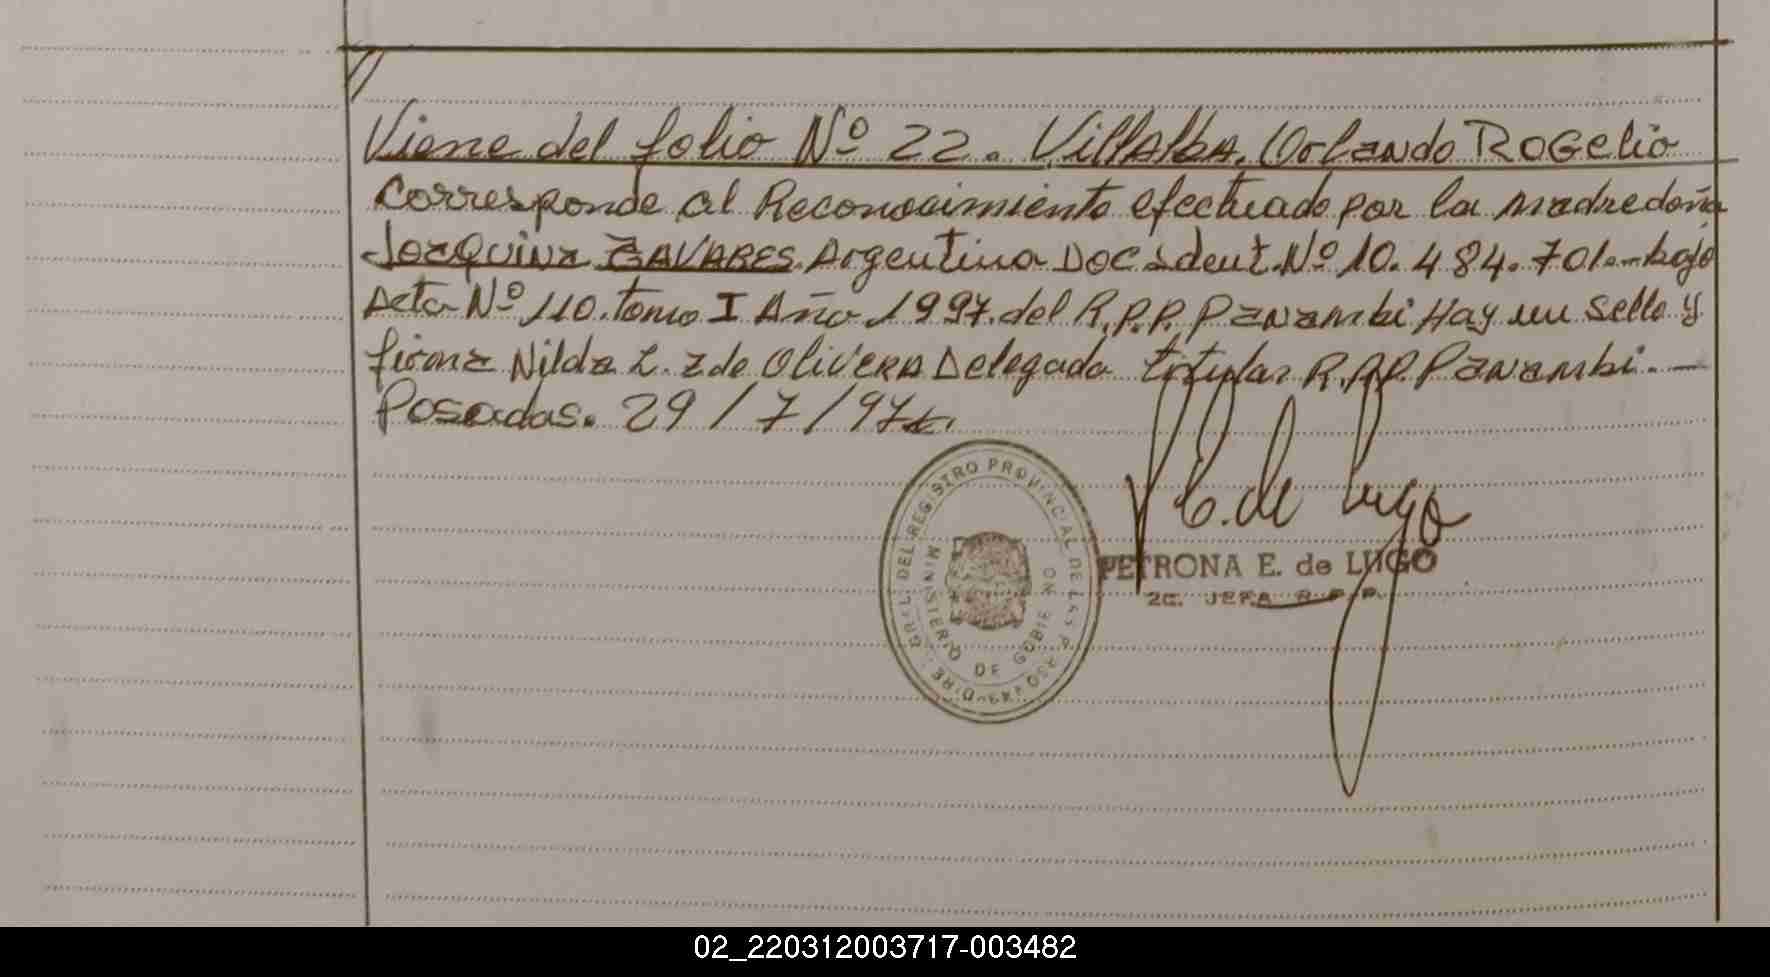 Viene del folio Nº 22. Villalba, Orlando Rogelio
Corresponde al Reconocimiento efectuado por la madre doña
Joaquina ZAVARES. Argentina Doc. Ident. Nº 10.484.701.- bajo
Acta Nº 110. Tomo I Año 1997. del R.P.P. Panambi Hay un sello y
firma Nilda L. Z de OliVERA Delegada titular R.P.P. Panambi. —
Posadas. 29/7/97
P. E. de Lugo
DIREC. GRAL. DEL REGISTRO PROVINCIAL DE LAS PERSONAS
MINISTERIO DE GOBIERNO
PETRONA E. de LUGO
2a. JEFA R.P.P.
02_220312003717-003482